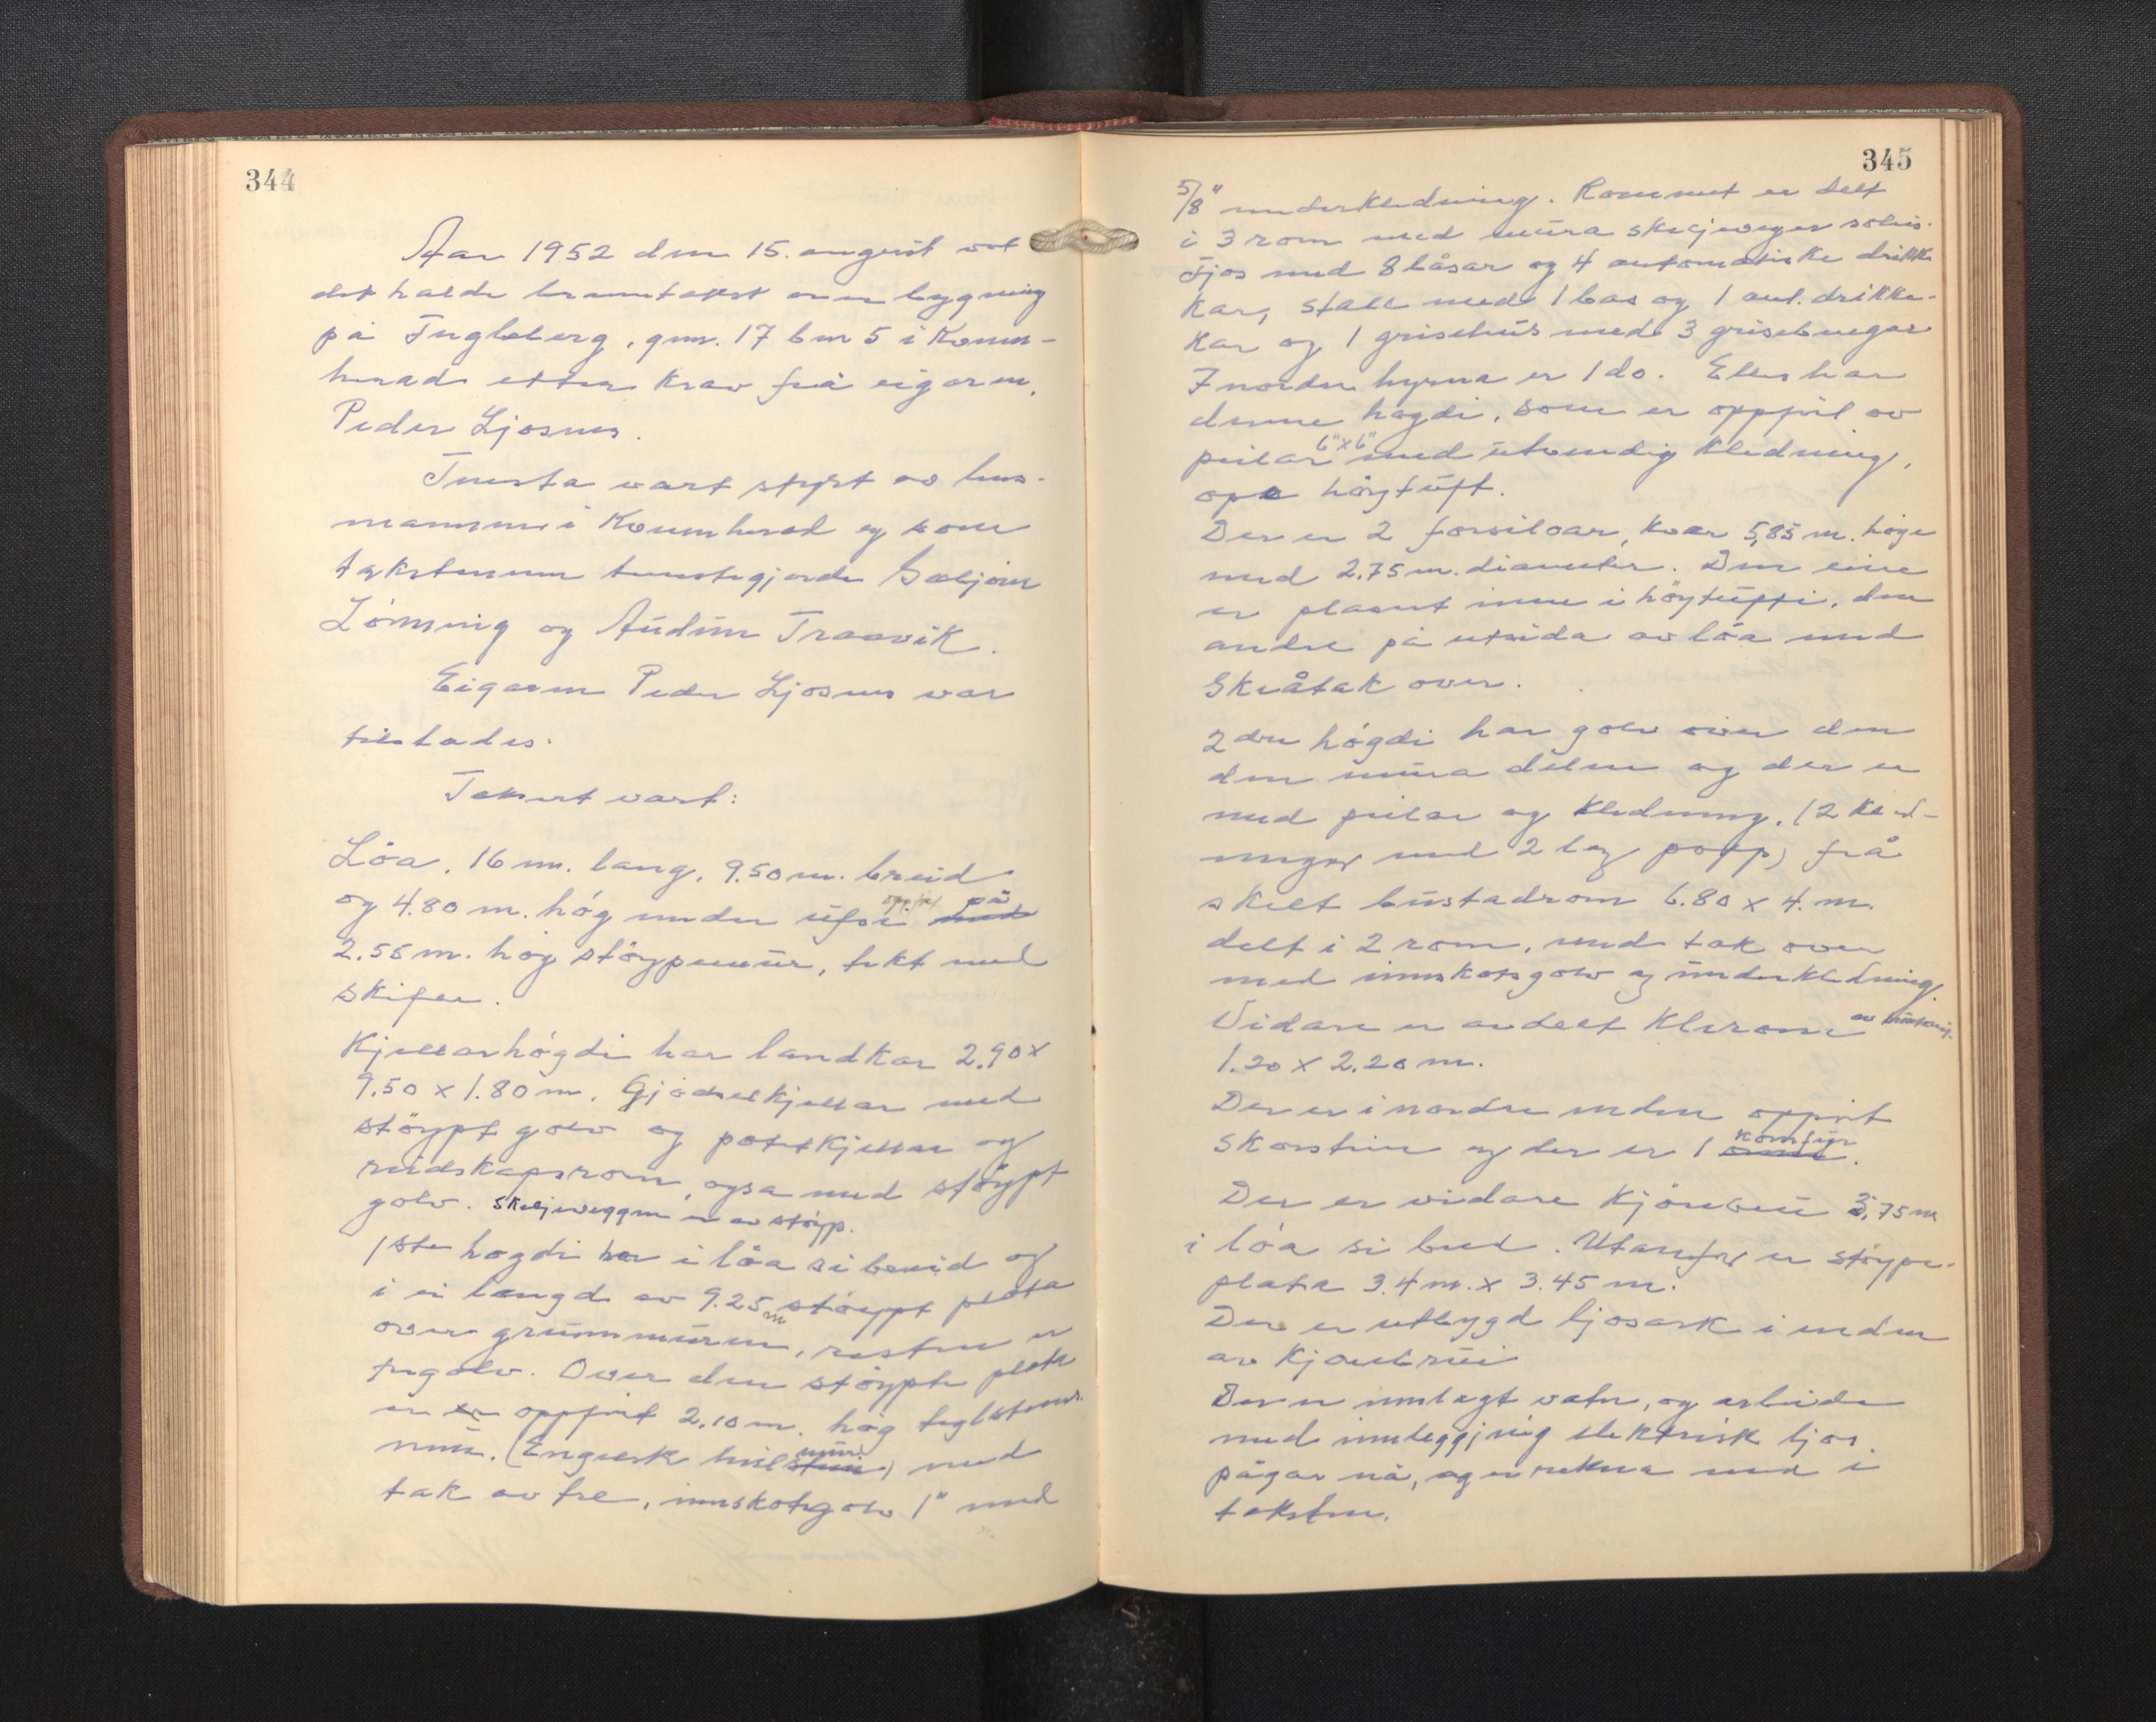 344
Aar 1952 den 15. august vart
det halde branntakst over en bygning
på Fugleberg, gnr. 17 bnr 5 i Kvinn-
herad etter krav frå eigaren,
Peder Ljosnes.
Tnesta vart styrt av lens-
mannen i Kvinnherad og som
takstmenn tenestegjorde
Lønning og Audun Traavik.
Eigaren Peder Ljosnes var
tilstades.
Taksert vart:
Löa, 16 m. lang, 9.50 m. breid
og 4.80 m. hög under ufsi oppført på med
2.55 m. hög støypemur, tekt med
skifer.
Kjellarhögdi har landkar 2.90 x
9.50 x 1.80 m. Gjødselkjellar med
støypt golv og potetkjellar og
reidskapsrom, ogsa med støypt
golv. Skiljeveggen er av støyp.
1ste högdi har i löa si breid og
i ei længd av 9.25 m støypt plata
over grunnmuren, resten er
tregolv. Over den støypte plata
er er oppført 2.10 m. hög teglsteins
mur. (Engelsk hulmur stein) med
tak av tre, innskotsgolv 1" med
345
5/8" underkledning. Rommet er delt
i 3 rom med mura skiljevegger soleis.
Fjos med 8 båsar og 4 automatiske drikke
kar, stall med 1 bas og 1 aut. drikke-
kar og 1 grisehus med 3 grisebingar
I nordre hyrna er 1 do. Elles har
denne høgdi, som er oppført av
peilar 6"x6" med utvendig kledning,
ope høytuft.
Der er 2 forsiloar, kvar 5,85 m. høge
med 2.75 m. diameter. Den eine
er plasert inne i høytufti, den
andre på utsida av löa med
Skråtak over.
2dre högdi har golv over den
den mura delen og der er
med peilar og kledning, (2 kled-
ningar med 2 lag papp) frå
skilt bustadrom 6.80 x 4. m.
delt i 2 rom, med tak over
med innskotsgolv og underkledning.
Vidare er avdelt klerom av
1.20 x 2.20 m.
Der er i nordre enden oppført
Skorstein og der er 1 komfyr omn.
Der er vidare Kjörebru 3,75 m
i löa si bred. Utanfor er støype-
plata 3.4 m. x 3.45 m.
Der er utbygd ljosark i enden
av Kjørebrui
Der er innlagt vatn, og arbeide
med innleggjing elektrisk ljos.
pågar nå, og er rekna med i
taksten.